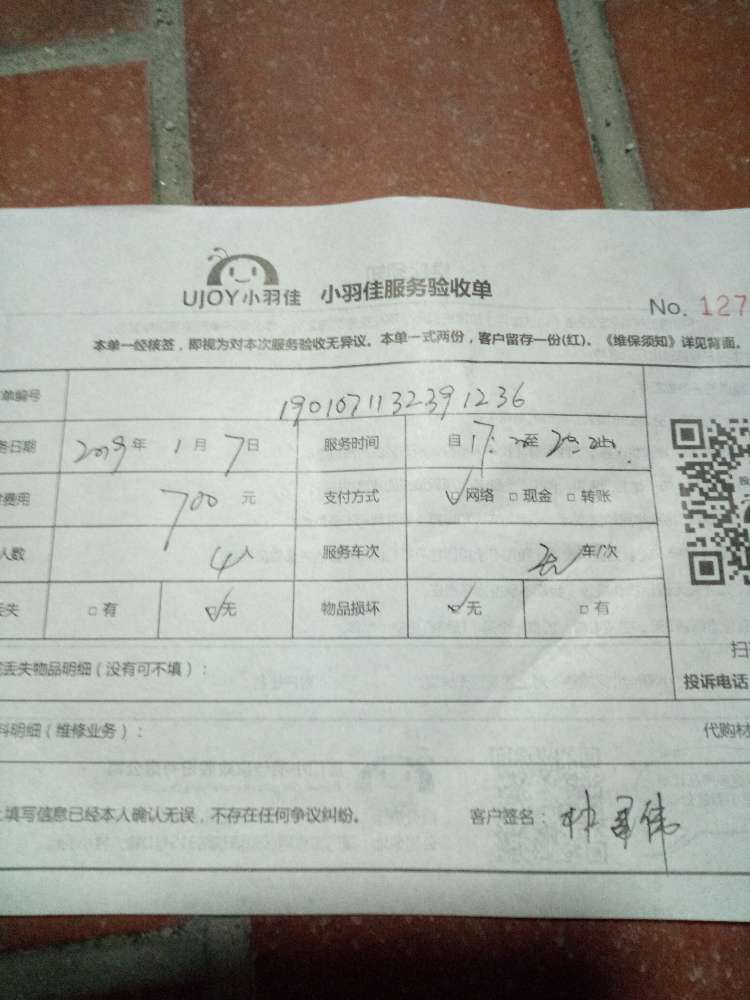 UJOY小羽佳 小羽佳服务验收单
No. 127
本单一经核签，即视为对本次服务验收无异议。本单一式两份，客户留存一份(红)。《维保须知》详见背面。
单编号 1901071132391236
务日期 2019年 1月 7日 服务时间 自 17: 至
费用 700 元 支付方式 网络 现金 转账
人数 4人 服务车次 车/次
丢失 有 无 物品损坏 无 有
丢失物品明细（没有可不填）：
扫
投诉电话
料明细（维修业务）： 代购材
填写信息已经本人确认无误，不存在任何争议纠纷。 客户签名：